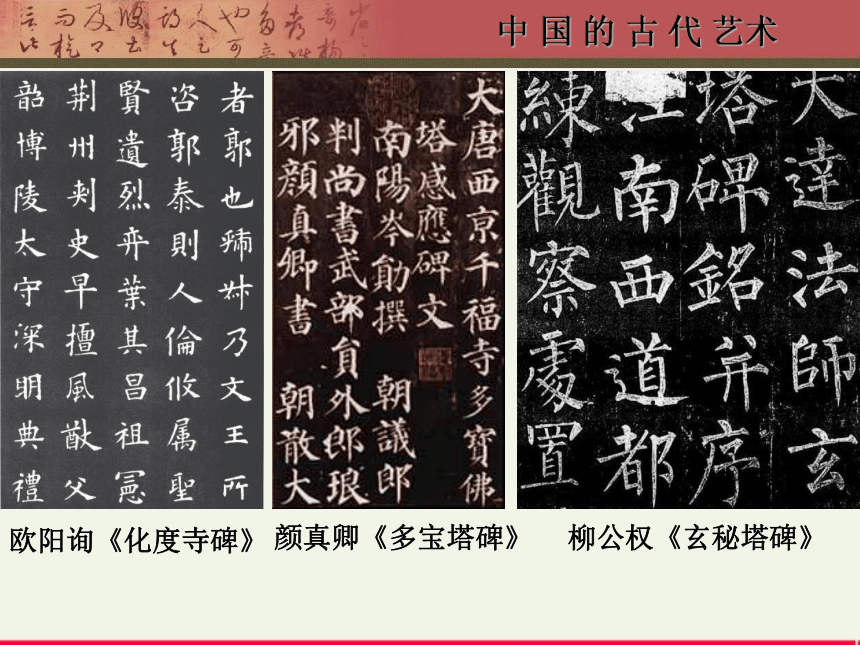 中 国 的 古 代 艺术
者郭也虢叔乃文王所
咨郭泰則人倫攸属聖
賢遺烈弈葉其昌祖憲
荆州刾史早擅風猷父
韶博陵太守深明典禮
大唐西京千福寺多寶佛
塔感應碑文
南陽岑勛撰 朝議郎
判尚書武部員外郎琅
邪顏真卿書 朝散大
大達法師玄
塔碑銘并序
江南西道都
練觀察處置
欧阳询《化度寺碑》
颜真卿《多宝塔碑》
柳公权《玄秘塔碑》